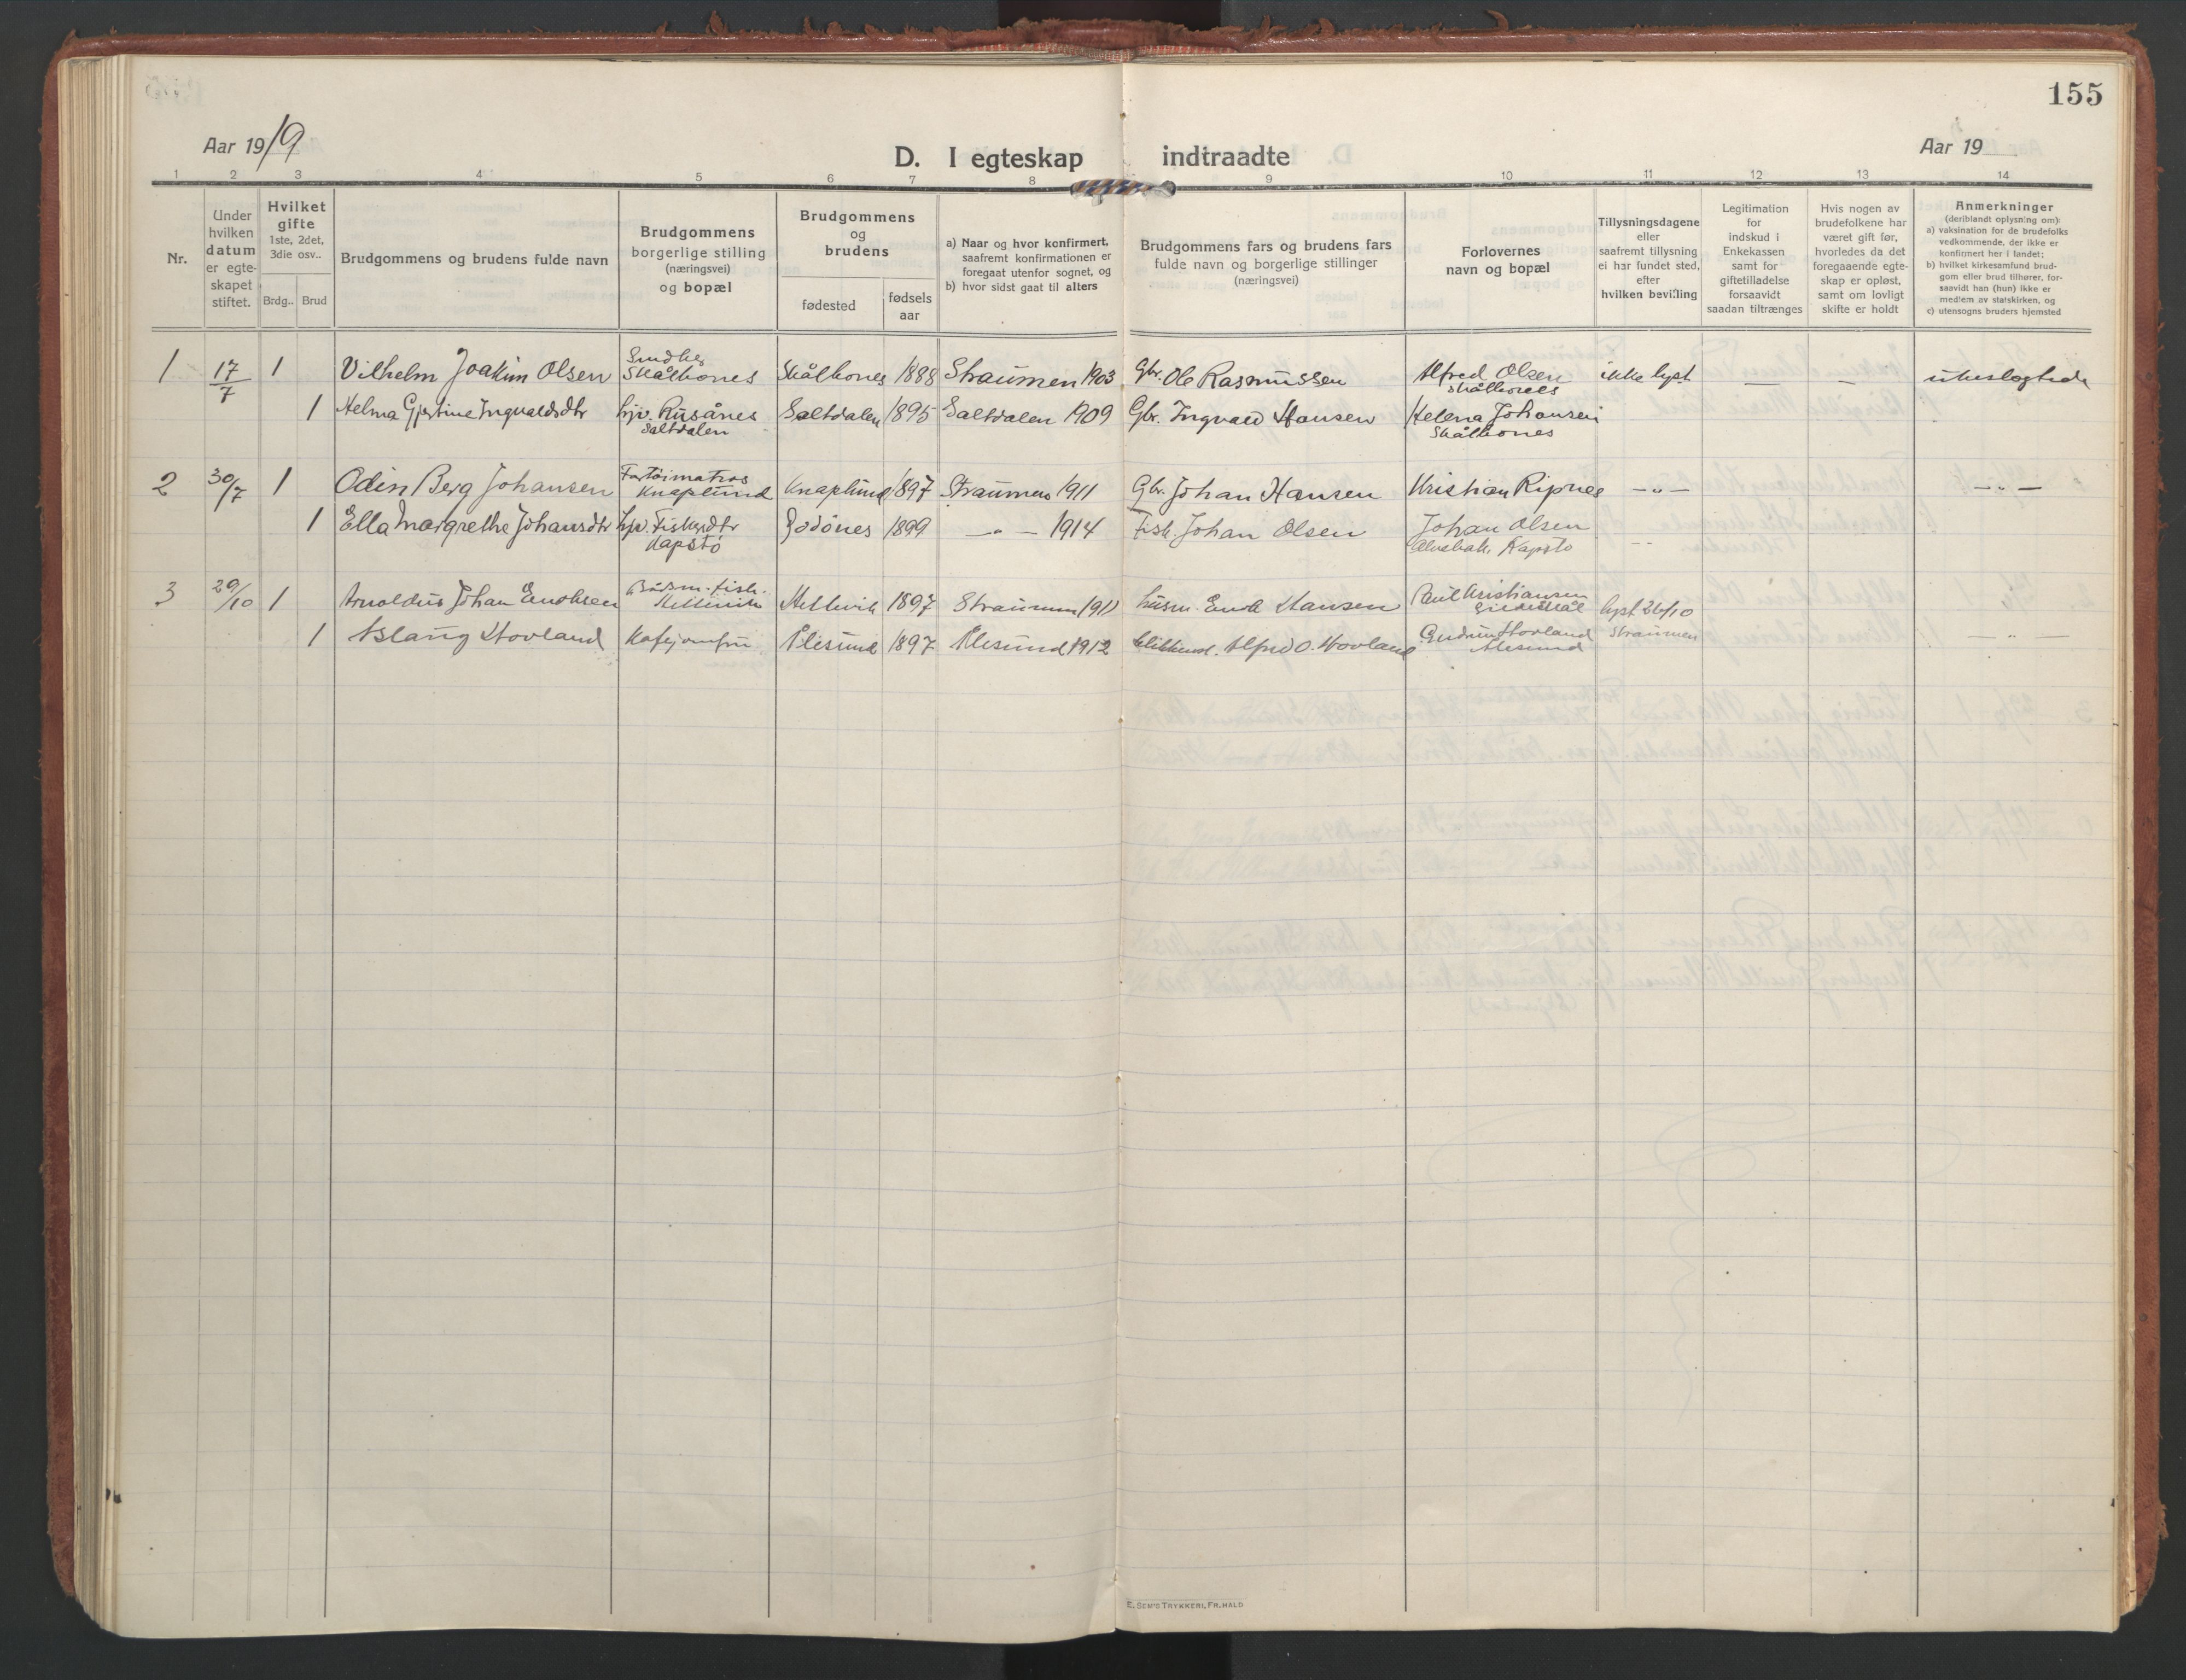 155
Aar 1919
D. I egteskap indtraadte
Aar 19
1 2 3 4 5 6 7 8 9 10 11 12 13 14
Nr.
Under
hvilken
datum
er egte-
skapet
stiftet.
Hvilket
gifte
1ste, 2det,
3die osv..
Brdg.. Brud
Brudgommens og brudens fulde navn
Brudgommens
borgerlige stilling
(næringsvei)
og bopæl
Brudgommens
og
brudens
fødested
fødsels
aar
a) Naar og hvor konfirmert,
saafremt konfirmationen er
foregaat utenfor sognet, og
b) hvor sidst gaat til alters
Brudgommens fars og brudens fars
fulde navn og borgerlige stillinger
(næringsvei)
Forlovernes
navn og bopæl
Tillysningsdagene
eller
saafremt tillysning
ei har fundet sted,
efter
hvilken bevilling
Legitimation
for
indskud i
Enkekassen
samt for
giftetilladelse
forsaavidt
saadan tiltrænges
Hvis nogen av
brudefolkene har
været gift før,
hvorledes da det
foregaaende egte-
skap er opløst,
samt om lovligt
skifte er holdt
Anmerkninger
(deriblandt oplysning om):
a) vaksination for de brudefolks
vedkommende, der ikke er
konfirmert her i landet;
b) hvilket kirkesamfund brud-
gom eller brud tilhører, for-
saavidt han (hun) ikke er
medlem av statskirken, og
c) utensogns bruders hjemsted
1 17/7 1 Vilhelm Joakim Olsen Smedke Skålbones Skålbones 1888 Straumen 1903 Gbr. Ole Rasmussen Alfred Olsen Skålbones ikke lyst — — ubeslegtede
1 Helma Gjertine Ingvaldsdtr hjv. Rusånes Saltdalen Saltdalen 1895 Saltdalen 1909 Gbr. Ingvald Hansen Helena Johansen Skålbones
2 30/7 1 Odin Berg Johansen Fartøimatros Knaplund Knaplund 1897 Straumen 1911 Gbr. Johan Hansen Kristian Ripnes — " — — " —
1 Ella Margrethe Johansdtr hjv. Fiskerdtr Kapstø Godönes 1899 — " — 1914 Fisk. Johan Olsen Johan Olsen Kapstø
3 29/10 1 Arnoldus Johan Enoksen Bådsm. fisk. Hellevik 1897 Straumen 1911 husm. Enok Hansen Paul Kristiansen Gildeskål lyst 26/10
1 Aslaug Hovland Kafejomfru Ålesund 1897 Ålesund 1912 Alfred O. Hovland Gudrun Hovland Ålesund Straumen — " —
E. SEM'S TRYKKERI, FR.HALD